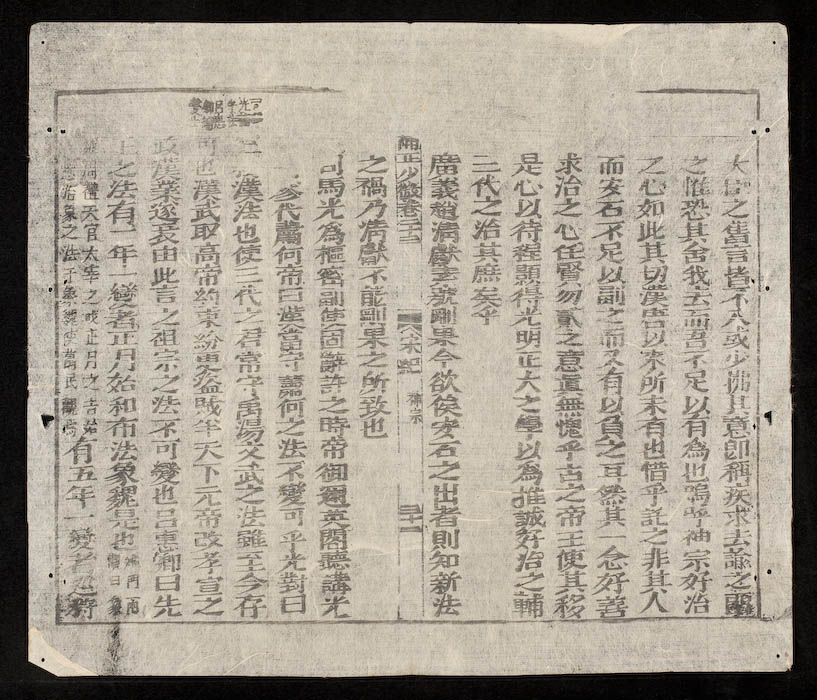 大臣之雋言皆不入或少怫其意卽稱疾求去諭之再
之惟恐其舍我去而吾不足以有為也嗚乎神宗好治
之心如此其切漢唐以來所未有也惜乎託之非其人
而安石不足以副之而又有以負之耳然其一念好善
求治之心任賢勿貳之意真無愧乎古之帝王使其移
是心以待程顥得光明正大之學以為推誠好治之輔
三代之治其庶矣乎
廣義趙清獻素號剛果今欲俟安石之出者則知新法
卷二十三
宋紀 神宗
三十一
之禍乃清獻不能剛果之所致也
司馬光為樞密副使固辭許之時帝御邇英閣聽講光
參代蕭何帝曰漢當守蕭何之法不變可乎光對曰
漢法也使三代之君常守禹湯文武之法雖至今存
可也漢武取高帝約束紛更盜賊半天下元帝改孝宣之
政漢業遂衰由此言之祖宗之法不可變也呂惠卿曰先
王之法有一年一變者正月始和布法象魏是也
周禮天官太宰之職正月之吉始
治象之法于象魏使萬民觀
有五年一變者巡狩